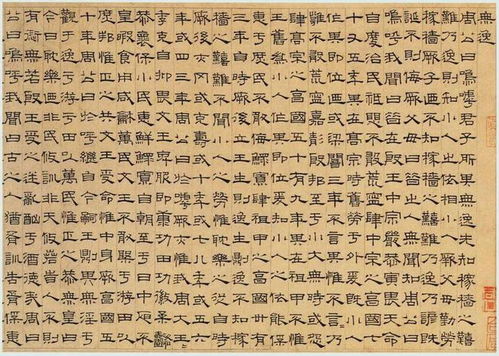 無逸
周公曰嗚呼君子所其無逸先知稼穡之艱
難乃逸則知小人之依相小人厥父母勤勞
稼穡厥子乃不知稼穡之艱難乃逸乃諺既
誕否則侮厥父母曰昔之人無聞知周公曰
嗚呼我聞曰昔在殷王中宗嚴恭寅畏天命
自度治民祗懼不敢荒寧肆中宗之享國七
十又五年其在高宗時舊勞于外爰暨小人
作其即位乃或亮闇三年不言其惟不言言
乃雍不敢荒寧嘉靖殷邦至于小大無時或怨
肆高宗之享國五十有九年其在祖甲不義惟
王舊為小人作其即位爰知小人之依能保
惠于庶民不敢侮鰥寡肆祖甲之享國卅有
三年自時厥後立王生則逸生則逸不知稼
穡之艱難不聞小人之勞惟耽樂之從自時
厥後亦罔或克壽或十年或七八年或五六
年或四三年周公曰於呼厥亦惟我周大王
王季克自抑畏文王卑服即康功田功徽柔懿
恭懷保小民惠鮮鰥寡自朝至于日中昃不
皇暇食用咸和萬民文王不敢槃于遊田以
庶邦惟正之共文王受命惟中身厥享國五
十年周公曰於呼繼自今嗣王則其無淫于
觀于逸于遊于田以萬民惟正之共無皇曰
今日耽樂乃非民攸訓非天攸若時人丕則
有愆無若殷王受之迷亂酗于酒德哉周
公曰嗚呼我聞曰古之人猶胥訓告胥保惠